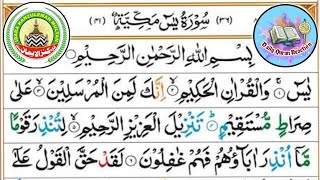 (٣٦) سُوْرَةُ يٰسٓ مَكِّيَّةٌ (٤١)
بِسْمِ اللّٰهِ الرَّحْمٰنِ الرَّحِيْمِ
يٰسٓ ۚ وَالْقُرْاٰنِ الْحَكِيْمِ ۙ اِنَّكَ لَمِنَ الْمُرْسَلِيْنَ ۙ عَلٰى
صِرَاطٍ مُّسْتَقِيْمٍ ؕ تَنْزِيْلَ الْعَزِيْزِ الرَّحِيْمِ ۙ لِتُنْذِرَ قَوْمًا
مَّاۤ اُنْذِرَ اٰبَآؤُهُمْ فَهُمْ غٰفِلُوْنَ لَقَدْ حَقَّ الْقَوْلُ عَلٰۤى
Daily Quran Reaction